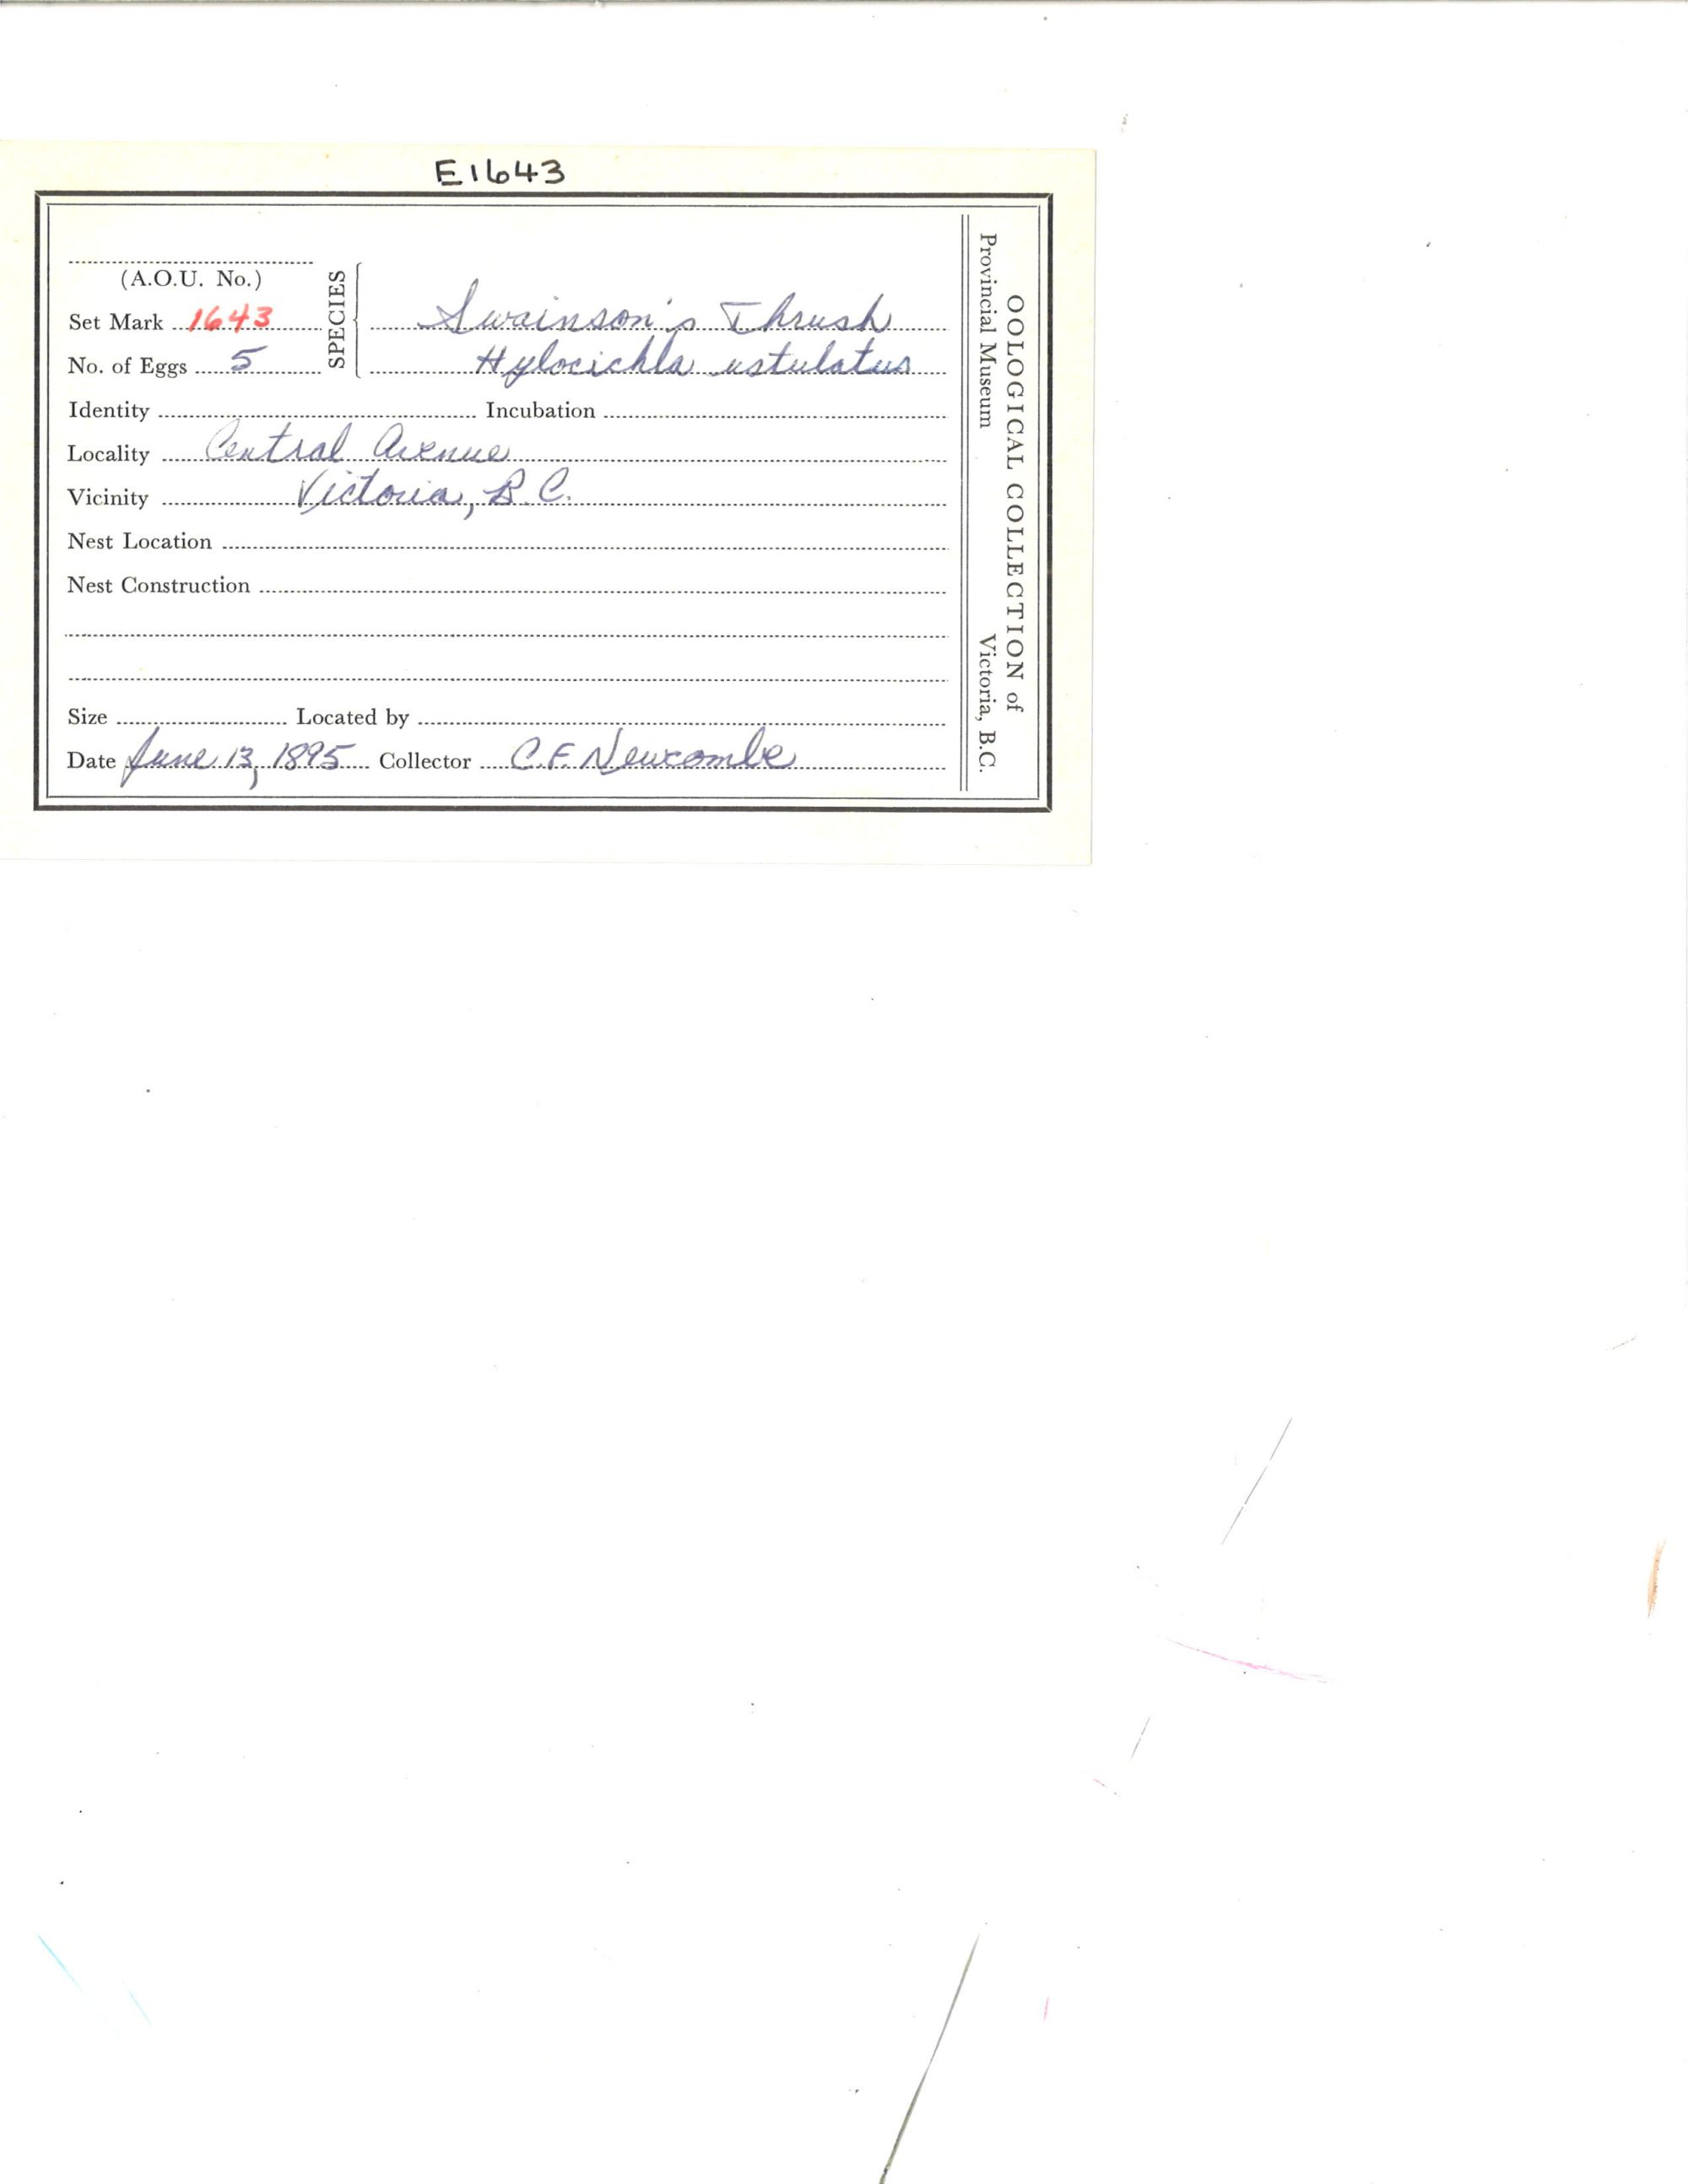 E1643
(A.O.U. No.)
SPECIES
Set Mark 1643
Swainson's Thrush
No. of Eggs 5
Hylocichla ustulatus
Identity Incubation
Locality Central Avenue
Vicinity Victoria, B.C.
Nest Location
Nest Construction
Size Located by
Date June 13, 1895 Collector C.F. Newcombe
OOLOGICAL COLLECTION of
Provincial Museum Victoria, B.C.